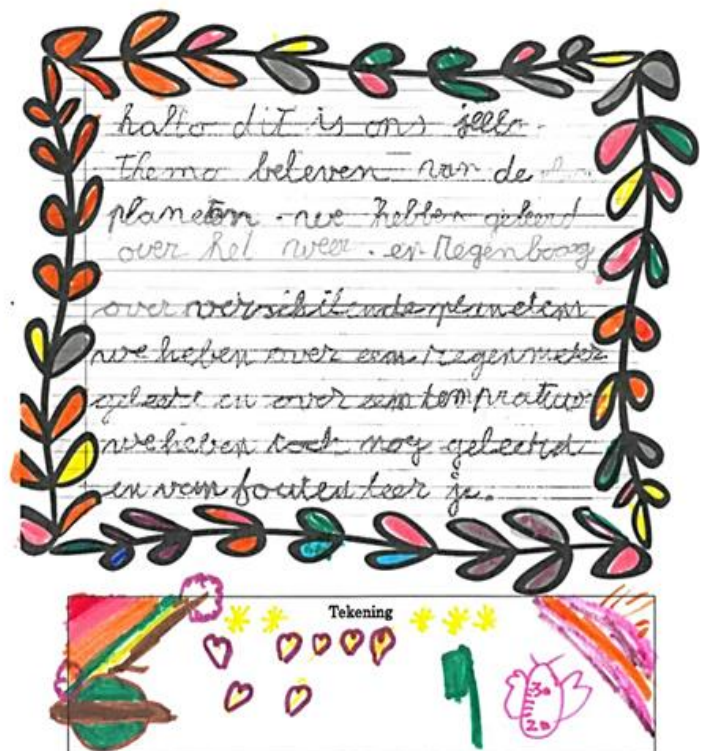 hallo dit is ons
thema beleven van de
planeten. we hebben geleerd
over het weer. en regenboog
over verschilende planetens
we heben over een regenmeter
geleert en over een tempratuur
we heben ook nog geleerd
en vam fouten leer je.
Tekening
30
20